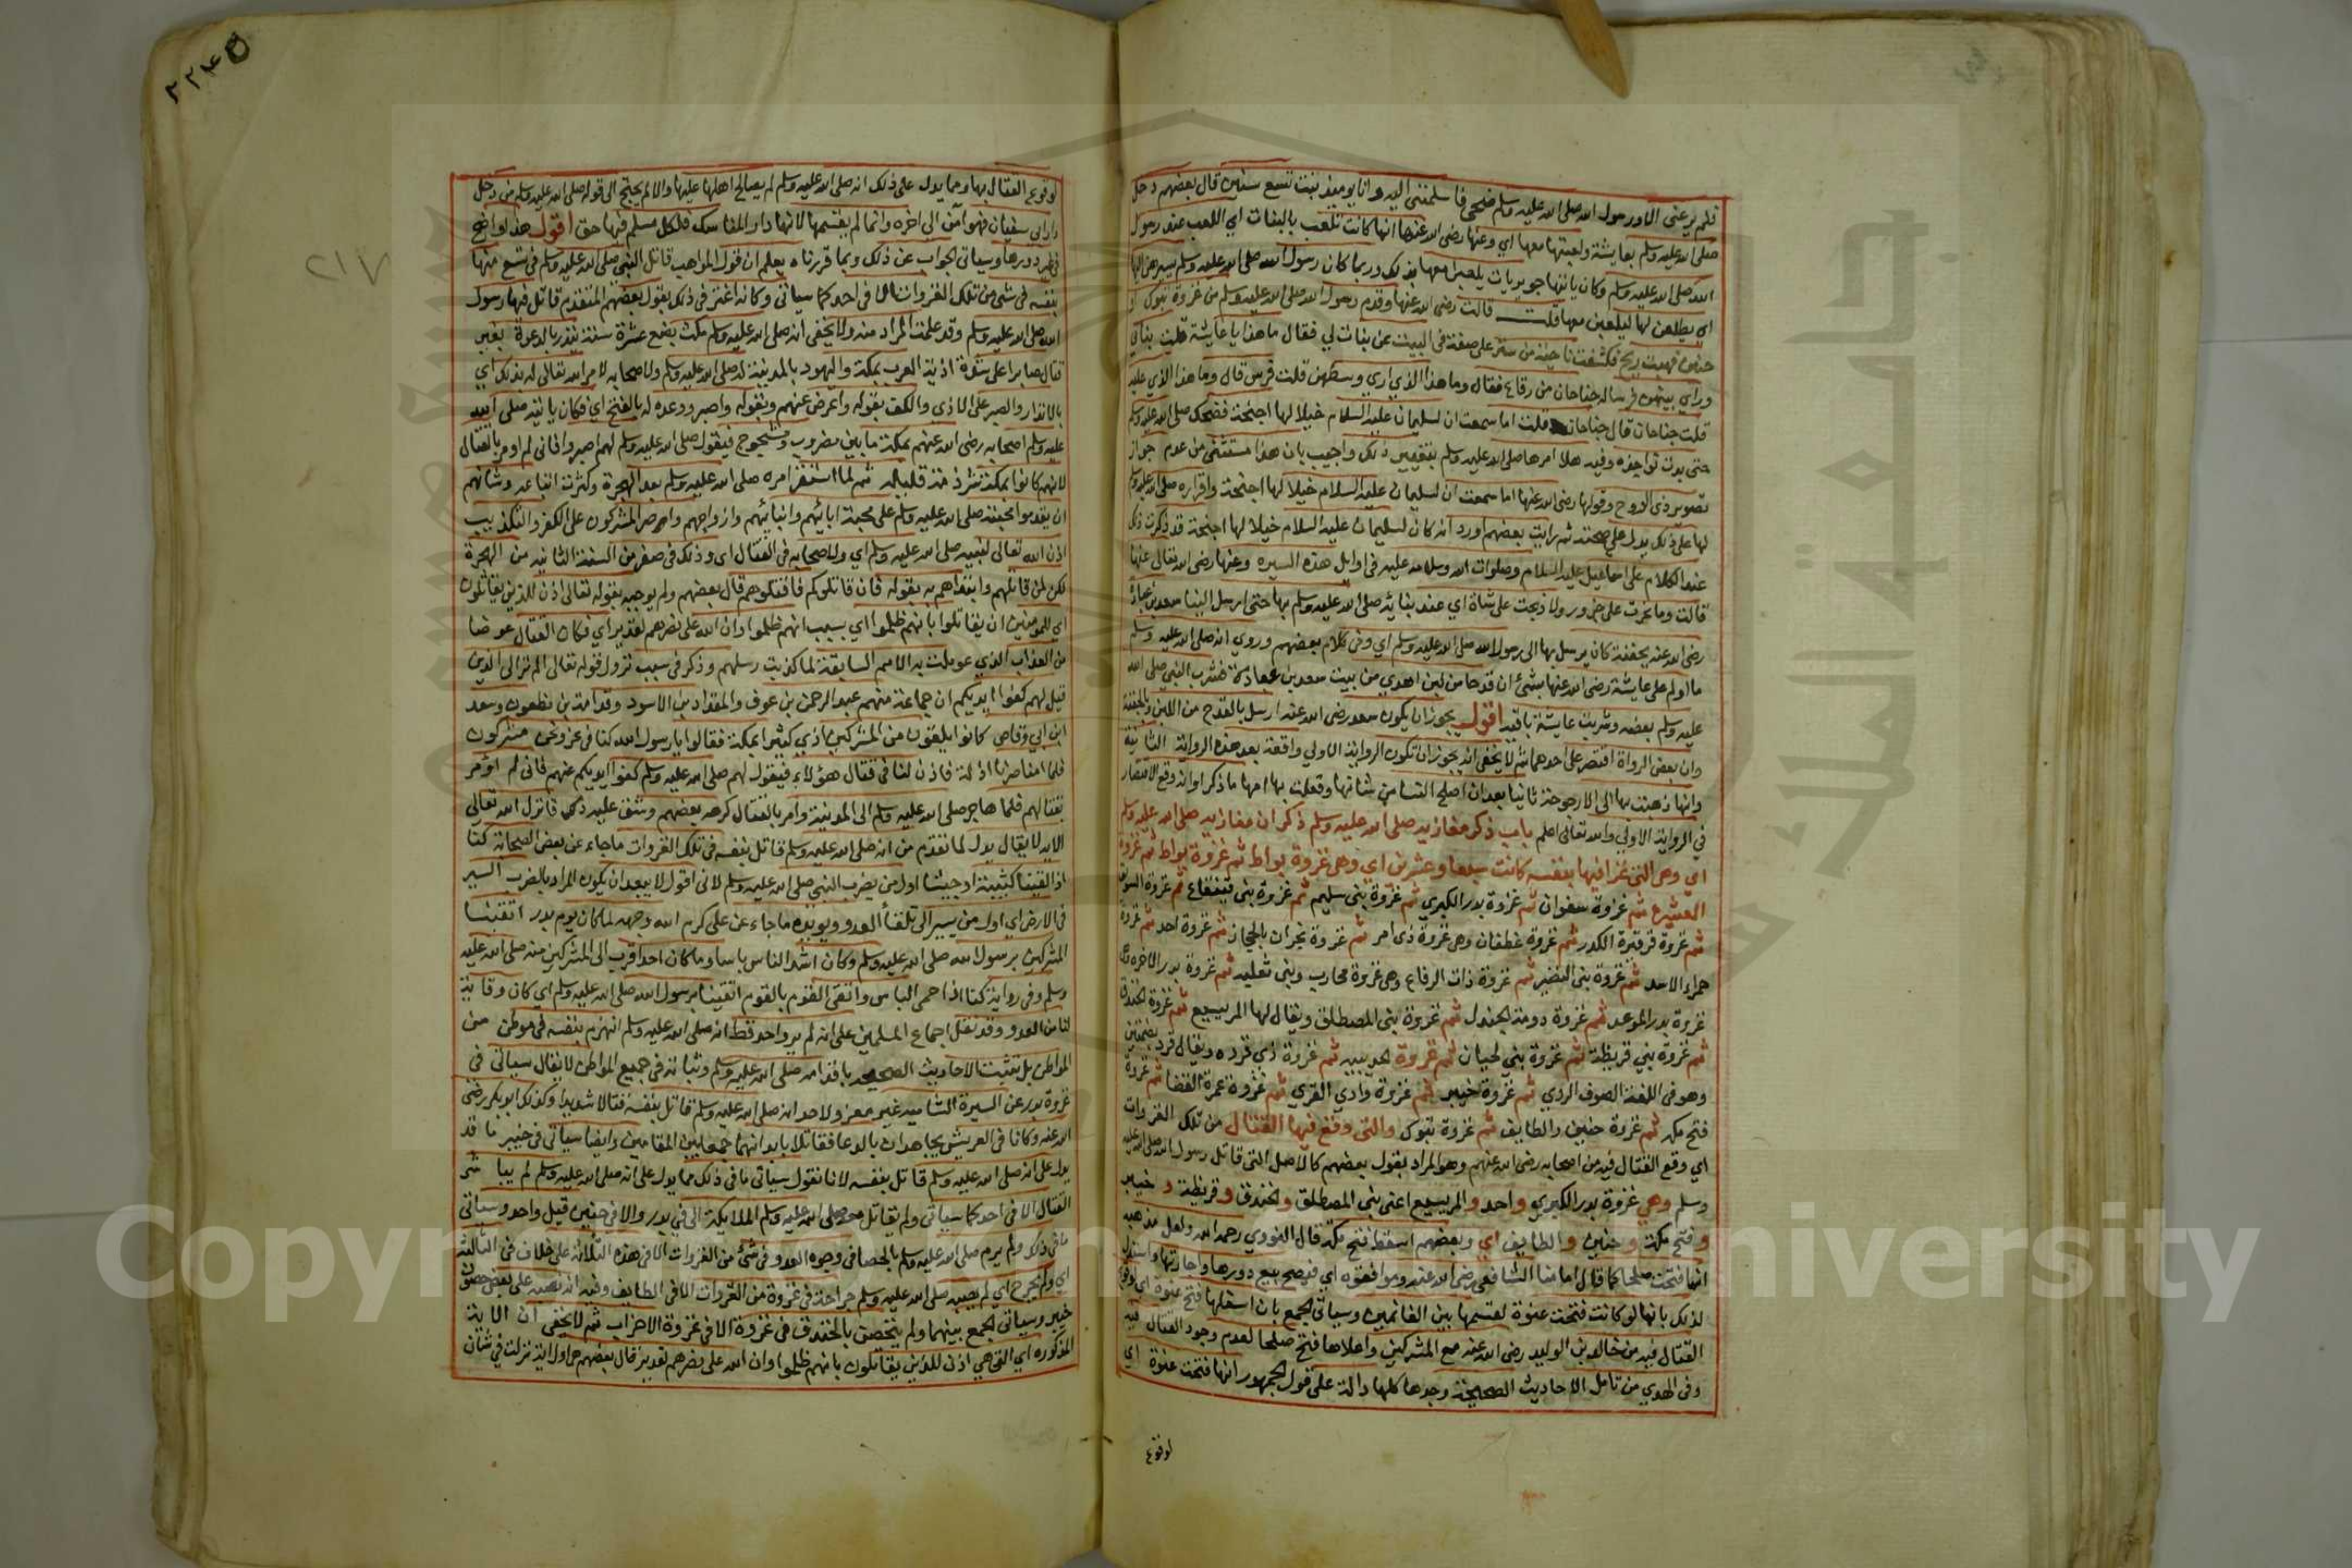 فلم يرعني الا ورسول الله صلى الله عليه وسلم ضحى فاسلمنني اليه وانا يوميذ بنت تسع سنين قال بعضهم دخل
صلى الله عليه وسلم بعايشة ولعبتها معها اي وعنها رضي الله عنها انها كانت تلعب بالبنات اي اللعب عند رسول
الله صلى الله عليه وسلم وكان ياتنها جويريات يلعبن معها بذلك وربما كان رسول الله صلى الله عليه وسلم يسيرهن اليها
اي يطلعن لها ليلعبن معها قلت قالت رضي الله عنها وقدم رسول الله صلى الله عليه وسلم من غزوة تبوك او
حنين فهبت ريح فكشفت ناحية من ستر على صفة في البيت عن بنات لي فقال ما هذا يا عايشة قلت بناتي
وراي بينهن فرسا له جناحان من رقاع فقال وما هذا الذي اري وسطهن قلت فرس قال وما هذا الذي عليه
قلت جناحان قال جناحان قلت اما سمعت ان لسليمان عليه السلام خيلا لها اجنحة فضحك صلى الله عليه وسلم
حتى بدت نواجذه وفيه هلا امرها صلى الله عليه وسلم بتغيير ذلك واجيب بان هذا مستثنى من عدم جواز
تصوير ذي الروح وقولها رضي الله عنها اما سمعت ان لسليمان عليه السلام خيلا لها اجنحة واقراره صلى الله عليه وسلم
لها على ذلك يدل على صحته ثم رايت بعضهم اورد انه كان لسليمان عليه السلام خيلا لها اجنحة قد ذكرت ذلك
عند الكلام على اسماعيل عليه السلام وصلوات الله وسلامه عليه في اوايل هذه السيره وعنها رضي الله تعالى عنها
قالت وما نحرت علي جزور ولا ذبحت علي شاة اي عند بنائه صلى الله عليه وسلم بها حتى ارسل الينا سعد بن عبادة
رضي الله عنه بجفنة كان يرسل بها الى رسول الله صلى الله عليه وسلم اي وفي كلام بعضهم وروي انه صلى الله عليه وسلم
ما اولم على عايشة رضي الله عنها بشئ ان قدحا من لبن اهدي من بيت سعد بن عبادة فشرب النبي صلى الله
عليه وسلم بعضه وشربت عايشة باقيه اقول يجوز ان يكون سعد رضي الله عنه ارسل بالقدح من اللبن وبالجفنة
وان بعض الرواة اقتصر على احدهما ثم لا يخفى انه يجوز ان تكون الرواية الاولي واقعة بعد هذه الرواية الثانية
وانها ذهبت بها الى الارجوحة ثانيا بعد ان اصلح النسا من شانها وفعلت بها امها ما ذكر او انه وقع الاقتصار
في الرواية الاولي والله تعالى اعلم باب ذكر مغازيه صلى الله عليه وسلم ذكر ان مغازيه صلى الله عليه وسلم
اي وهي التي غزا فيها بنفسه كانت سبعا وعشرين اي وهي غزوة بواط ثم غزوة بواط ثم غزوة
العشيرة ثم غزوة سفوان ثم غزوة بدر الكبري ثم غزوة بني سليم ثم غزوة بني قينقاع ثم غزوة السويق
ثم غزوة قرقرة الكدر ثم غزوة غطفان وهي غزوة ذي امر ثم غزوة نجران بالحجاز ثم غزوة احد ثم غزوة
حمراء الاسد ثم غزوة بني النضير ثم غزوة ذات الرقاع وهي غزوة محارب وبني ثعلبه ثم غزوة بدر الاخره وهي
غزوة بدر الموعد ثم غزوة دومة الجندل ثم غزوة بني المصطلق ويقال لها المريسيع ثم غزوة الخندق
ثم غزوة بني قريظة ثم غزوة بني لحيان ثم غزوة الحديبيه ثم غزوة ذي قرده ويقال قرد بضمتين
وهو في اللغة الصوف الردي ثم غزوة خيبر ثم غزوة وادي القري ثم غزوة عمرة القضا ثم غزوة
فتح مكه ثم غزوة حنين والطايف ثم غزوة تبوك والتي وقع فيها القتال من تلك الغزوات
اي وقع القتال فيه من اصحابه رضي الله عنهم وهو المراد بقول بعضهم كالاصل التي قاتل رسول الله صلى الله عليه
وسلم وهي غزوة بدر الكبري واحد والمريسيع اعني بني المصطلق والخندق وقريظة وخيبر
وفتح مكة وحنين والطايف اي وبعضهم اسقط فتح مكة قال النووي رحمه الله ولعل مذهبه
انها فتحت صلحا كما قال امامنا الشافعي رضي الله عنه وموافقوه اي فيصح بيع دورها واجارتها واستدل
لذلك بانها لو كانت فتحت عنوة لقسمها بين الغانمين وسياتي الجمع بان اسفلها فتح عنوة اي لوقوع
القتال فيه من خالد بن الوليد رضي الله عنه مع المشركين واعلاها فتح صلحا لعدم وجود القتال فيه
وفي الهدي من تامل الاحاديث الصحيحة وجدها كلها دالة على قول الجمهور انها فتحت عنوة اي
لوقوع
لوقوع القتال بها ومما يدل على ذلك انه صلى الله عليه وسلم لم يصالح اهلها عليها والا لم يحتج الى قوله صلى الله عليه وسلم من دخل
دار ابي سفيان فهو امن الى اخره وانما لم يقسمها لانها دار المناسك فلكل مسلم فيها حق اقول هذا واضح
في غير دورها وسياتي الجواب عن ذلك وبما قررناه يعلم ان قول المواهب قاتل النبي صلى الله عليه وسلم في تسع منها
بنفسه في شئ من تلك الغزوات الا في احد كما سياتي وكانه اغتر في ذلك بقول بعضهم المتقدم قاتل فيها رسول
الله صلى الله عليه وسلم وقد علمت المراد منه ولا يخفى انه صلى الله عليه وسلم مكث بضع عشرة سنة ينذر بالدعوة بغير
قتال صابرا على شدة اذية العرب بمكة واليهود بالمدينة له صلى الله عليه وسلم ولاصحابه لامر الله تعالى له بذلك اي
بالانذار والصبر على الاذي والكف بقوله واعرض عنهم وبقوله واصبر ووعده له بالفتح اي فكان ياتيه صلى الله
عليه وسلم اصحابه رضي الله عنهم بمكة ما بين مضروب ومشجوج فيقول صلى الله عليه وسلم لهم اصبروا فاني لم اومر بالقتال
لانهم كانوا بمكة شرذمة قليله ثم لما استقر امره صلى الله عليه وسلم بعد الهجرة وكثرت اتباعه وشانهم
ان يقدموا محبته صلى الله عليه وسلم على محبة ابائهم وابنائهم وازواجهم واصر المشركون على الكفر والتكذيب
اذن الله تعالى لنبيه صلى الله عليه وسلم اي ولاصحابه في القتال اي وذلك في صفر من السنة الثانيه من الهجرة
لكن لمن قاتلهم وابتداهم به بقوله فان قاتلوكم فاقتلوهم قال بعضهم ولم يوجبه بقوله تعالى اذن للذين يقاتلون
اي للمومنين ان يقاتلوا بانهم ظلموا اي بسبب انهم ظلموا وان الله على نصرهم لقدير اي فكان القتال عوضا
من العذاب الذي عوملت به الامم السابقة لما كذبت رسلهم وذكر في سبب نزول قوله تعالى الم تر الى الذين
قيل لهم كفوا ايديكم ان جماعة منهم عبد الرحمن بن عوف والمقداد بن الاسود وقدامة بن مظعون وسعد
ابن ابي وقاص كانوا يلقون من المشركين اذي كثيرا بمكة فقالوا يا رسول الله كنا في عز ونحن مشركون
فلما امنا صرنا اذلة فاذن لنا في قتال هؤلاء فيقول لهم صلى الله عليه وسلم كفوا ايديكم عنهم فاني لم اؤمر
بقتالهم فلما هاجر صلى الله عليه وسلم الى المدينة وامر بالقتال كرهه بعضهم وشق عليه ذلك فانزل الله تعالى
الايه لا يقال يدل لما تقدم من انه صلى الله عليه وسلم قاتل بنفسه في تلك الغزوات ما جاء عن بعض الصحابة كنا
اذا لقينا كتيبة او جيشا اول من يضرب النبي صلى الله عليه وسلم لاني اقول لا يبعد ان يكون المراد بالضرب السير
في الارض اي اول من يسير الى تلقا العدو ويويده ما جاء عن علي كرم الله وجهه لما كان يوم بدر اتقينا
المشركين برسول الله صلى الله عليه وسلم وكان اشد الناس باسا وما كان احد اقرب الى المشركين منه صلى الله عليه
وسلم وفي رواية كنا اذا حمى الباس والتقى القوم بالقوم اتقينا برسول الله صلى الله عليه وسلم اي كان وقاية
لنا من العدو وقد نقل اجماع المسلمين على انه لم يرو احد قط انه صلى الله عليه وسلم انهزم بنفسه في موطن من
المواطن بل تثبت الاحاديث الصحيحه باقدامه صلى الله عليه وسلم وثباته في جميع المواطن لا يقال سياتي في
غزوة بدر عن السيرة الشاميه غير معزو لاحد انه صلى الله عليه وسلم قاتل بنفسه قتالا شديدا وكذلك ابو بكر رضي
الله عنه وكانا في العريش يجاهدان بالدعا فقاتلا بابدانهما جمعا بين المقامين وايضا سياتي في خيبر ما قد
يدل على انه صلى الله عليه وسلم قاتل بنفسه لانا نقول سياتي ما في ذلك مما يدل على انه صلى الله عليه وسلم لم يباشر
القتال الا في احد كما سياتي ولم تقاتل معه صلى الله عليه وسلم الملايكة الا في بدر والا في حنين قيل واحد وسياتي
ما في ذلك ولم يرم صلى الله عليه وسلم بالحصا في وجوه العدو في شئ من الغزوات الا في هذه الثلاثة على خلاف في الثالثة
اي ولم يجرح اي لم يصبه صلى الله عليه وسلم جراحة في غزوة من الغزوات الا في الطايف وفيه انه نصب على بعض حصون
خيبر وسياتي الجمع بينهما ولم يتحصن بالخندق في غزوة الا في غزوة الاحزاب ثم لا يخفى ان الاية
المذكوره اي التي هي اذن للذين يقاتلون بانهم ظلموا وان الله على نصرهم لقدير قال بعضهم هي اول اية نزلت في شان
٢١٧
Copyright © University